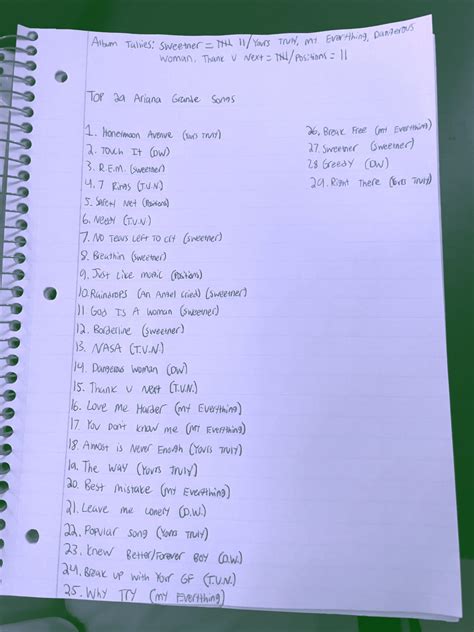 Album Tallies: Sweetner = 𝍸 II/Yours Truly, My Everything, Dangerous
Woman, Thank U Next = 𝍸/Positions = II
Top 29 Ariana Grande Songs
1. Honeymoon Avenue (Yours Truly)
2. Touch It (DW)
3. R.E.M. (Sweetner)
4. 7 Rings (T.U.N.)
5. Safety Net (Positions)
6. Needy (T.U.N.)
7. No Tears Left to Cry (Sweetner)
8. Breathin (Sweetner)
9. Just Like Music (Positions)
10. Raindrops (An Angel Cried) (Sweetner)
11. God Is A Woman (Sweetner)
12. Borderline (Sweetner)
13. NASA (T.U.N.)
14. Dangerous Woman (DW)
15. Thank U Next (T.U.N.)
16. Love Me Harder (My Everything)
17. You Don't Know Me (My Everything)
18. Almost is Never Enough (Yours Truly)
19. The Way (Yours Truly)
20. Best Mistake (My Everything)
21. Leave Me Lonely (D.W.)
22. Popular Song (Yours Truly)
23. Knew Better/Forever Boy (D.W.)
24. Break Up With Your GF (T.U.N.)
25. Why Try (My Everything)
26. Break Free (My Everything)
27. Sweetner (Sweetner)
28. Greedy (DW)
29. Right There (Yours Truly)